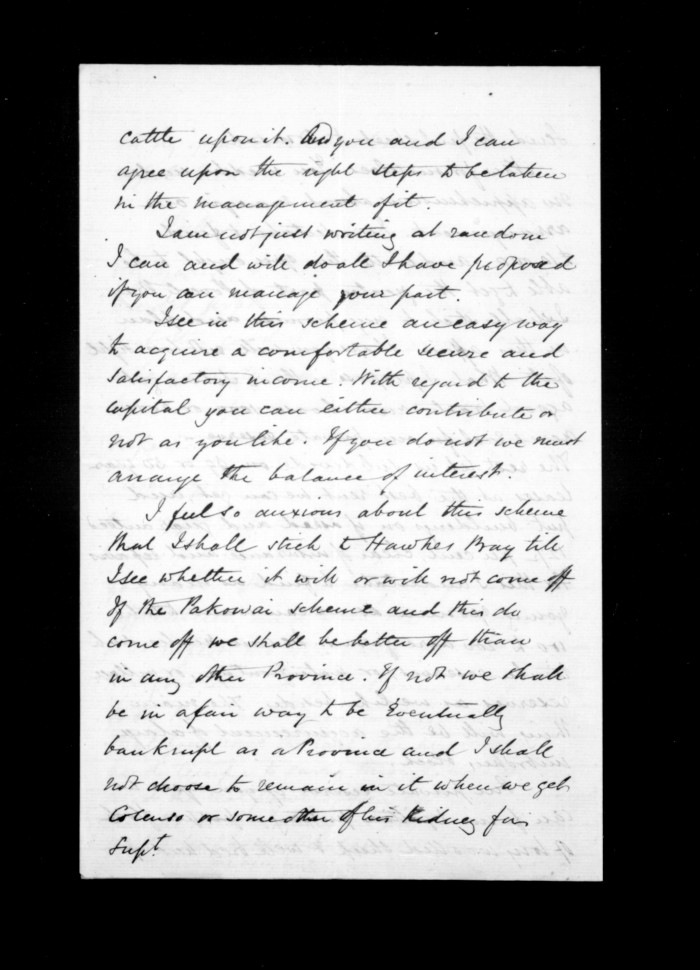 cattle upon it. And you and I can
agree upon the right steps to be taken
in the management of it.
I am not just writing at random
I can and will do all I have proposed
if you can manage your part.
I see in this scheme an easy way
to acquire a comfortable secure and
satisfactory income. With regard to the
capital you can either contribute or
not as you like. If you do not we must
arrange the balance of interest.
I feel so anxious about this scheme
that I shall stick to Hawkes Bay till
I see whether it will or will not come off
If the Pakowai scheme and this do
come off we shall be better off than
in any other Province. If not we shall
be in a fair way to be Eventually
bankrupt as a Province and I shall
not choose to remain in it when we get
Colenso or some other of his Kidney for
Supt.